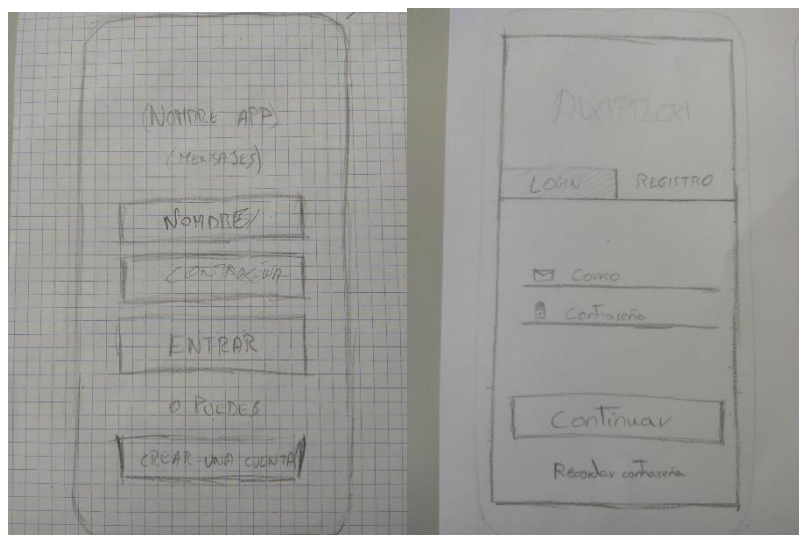 (NOMBRE APP)
(MENSAJES)
NOMBRE
CONTRASEÑA
ENTRAR
O PUEDES
CREAR UNA CUENTA
LOGIN
REGISTRO
Correo
Contraseña
Continuar
Recordar contraseña